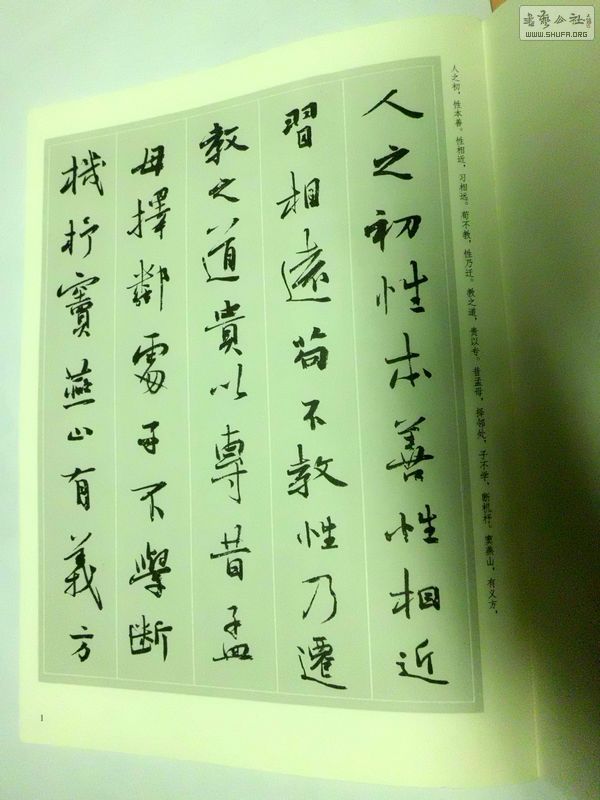 書藝公社
WWW.SHUFA.ORG
人之初，性本善。性相近，习相远。苟不教，性乃迁。教之道，贵以专。昔孟母，择邻处，子不学，断机杼。窦燕山，有义方，
人之初性本善性相近
習相遠苟不教性乃遷
教之道貴以專昔孟
母擇鄰處子不學斷
機杼竇燕山有義方
1